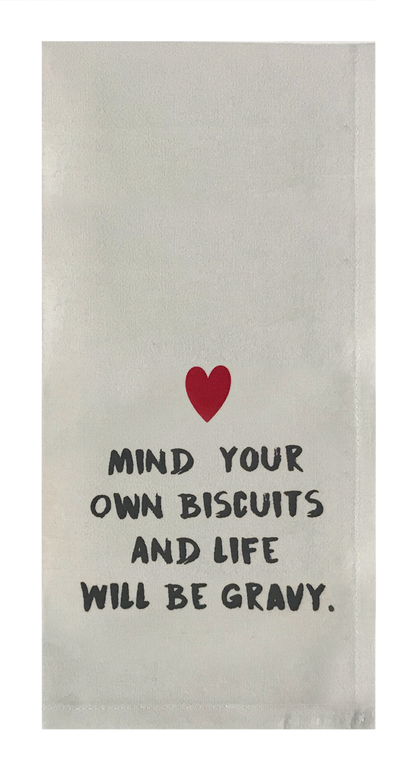 MIND YOUR
OWN BISCUITS
AND LIFE
WILL BE GRAVY.